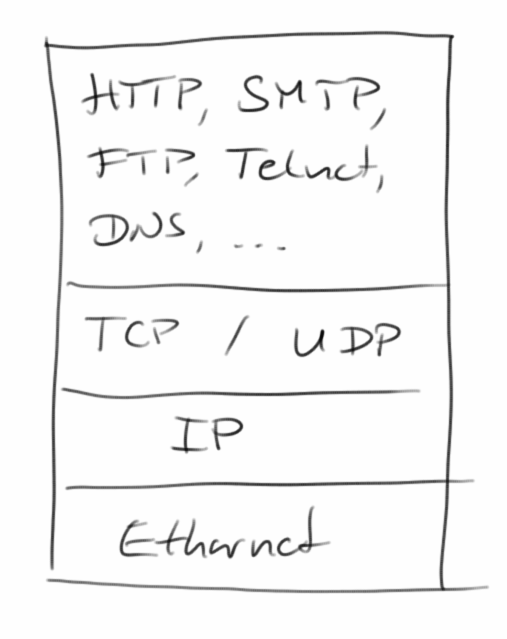 HTTP, SMTP,
FTP, Telnet,
DNS, ...
TCP / UDP
IP
Ethernet